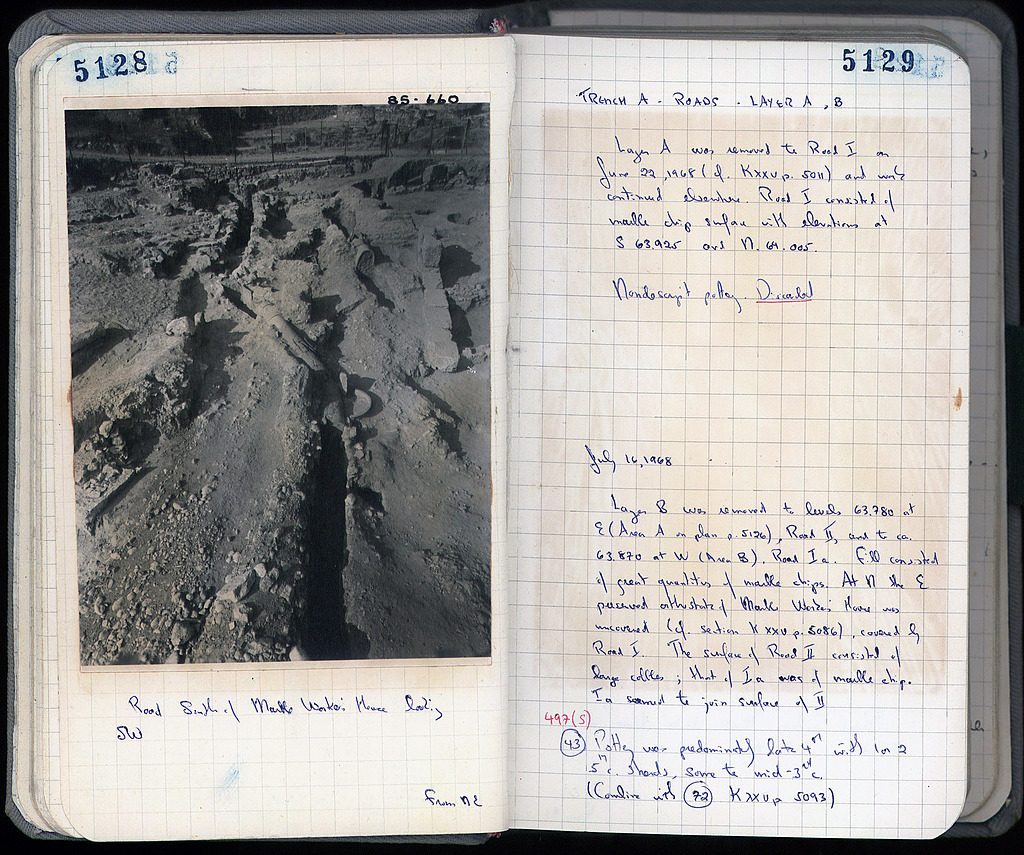 5128
85-660
Road South of Marble Worker's House looking
SW
from NE
5129
TRENCH A - ROADS - LAYER A, B
Layer A was removed to Road I on
June 22, 1968 (cf. KXXV p. 5011) and work
continued elsewhere. Road I consisted of
marble chip surface with elevations at
S 63.925 and N. 64.005.
Nondescript pottery. Discarded
July 16, 1968
Layer B was removed to levels 63.780 at
E (Area A on plan p. 5126), Road II, and to ca.
63.870 at W (Area B), Road Ia. Fill consisted
of great quantities of marble chips. At N the E
preserved orthostate of Marble Worker's House was
uncovered (cf. section KXXV p. 5086), covered by
Road I. The surface of Road II consisted of
large cobbles; that of Ia was of marble chip.
Ia seemed to join surface of II
497(S)
43 Pottery was predominately late 4th with 1 or 2
5th c. sherds, some to mid-3rd c.
(Combine with 72 KXXV p 5093)